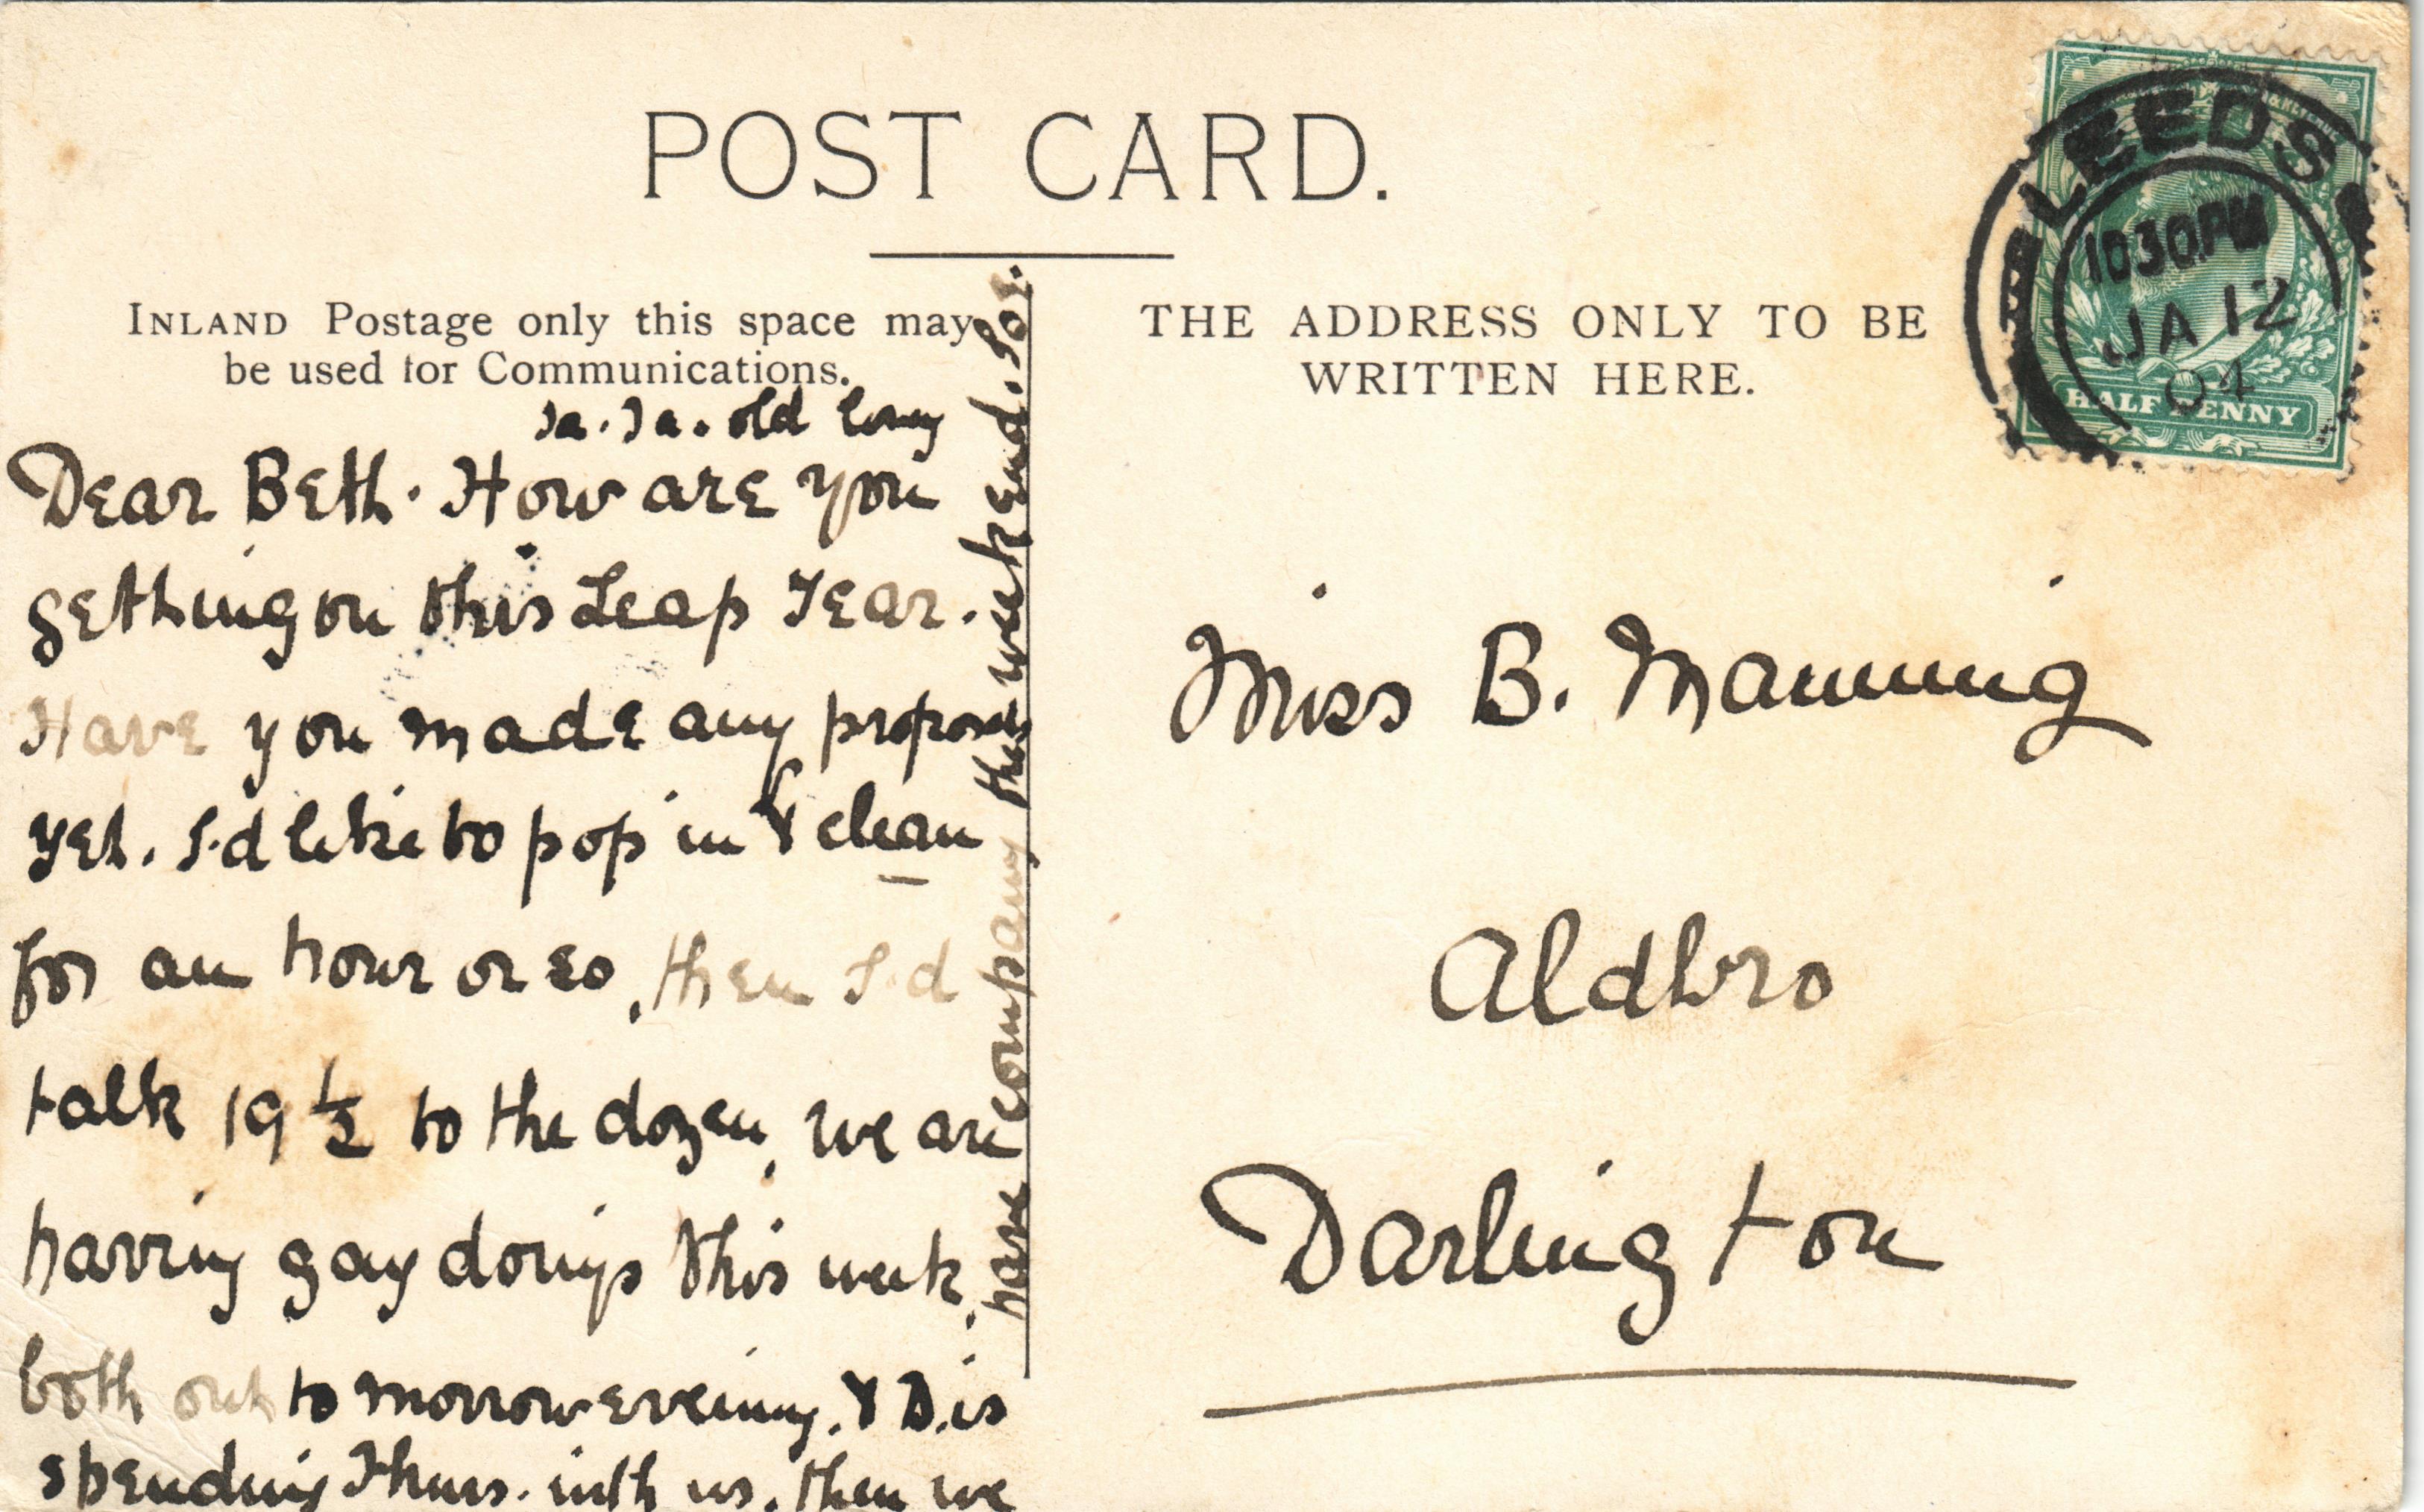 POST CARD.
INLAND Postage only this space may
be used for Communications.
THE ADDRESS ONLY TO BE
WRITTEN HERE.
LEEDS
10 30 PM
JA 12
04
HALF PENNY
Ta. Ta. old
Dear Beth. How are you
getting on this Leap Year.
Have you made any proposals
yet. I'd like to pop in & clean
for an hour or so, then I'd
talk 19 1/2 to the dozen, we are
having gay doings this week,
both out to morrow evening. & D. is
spending Thurs. with us, then we
have company the week end.
Miss B. Manning
Aldbro
Darlington